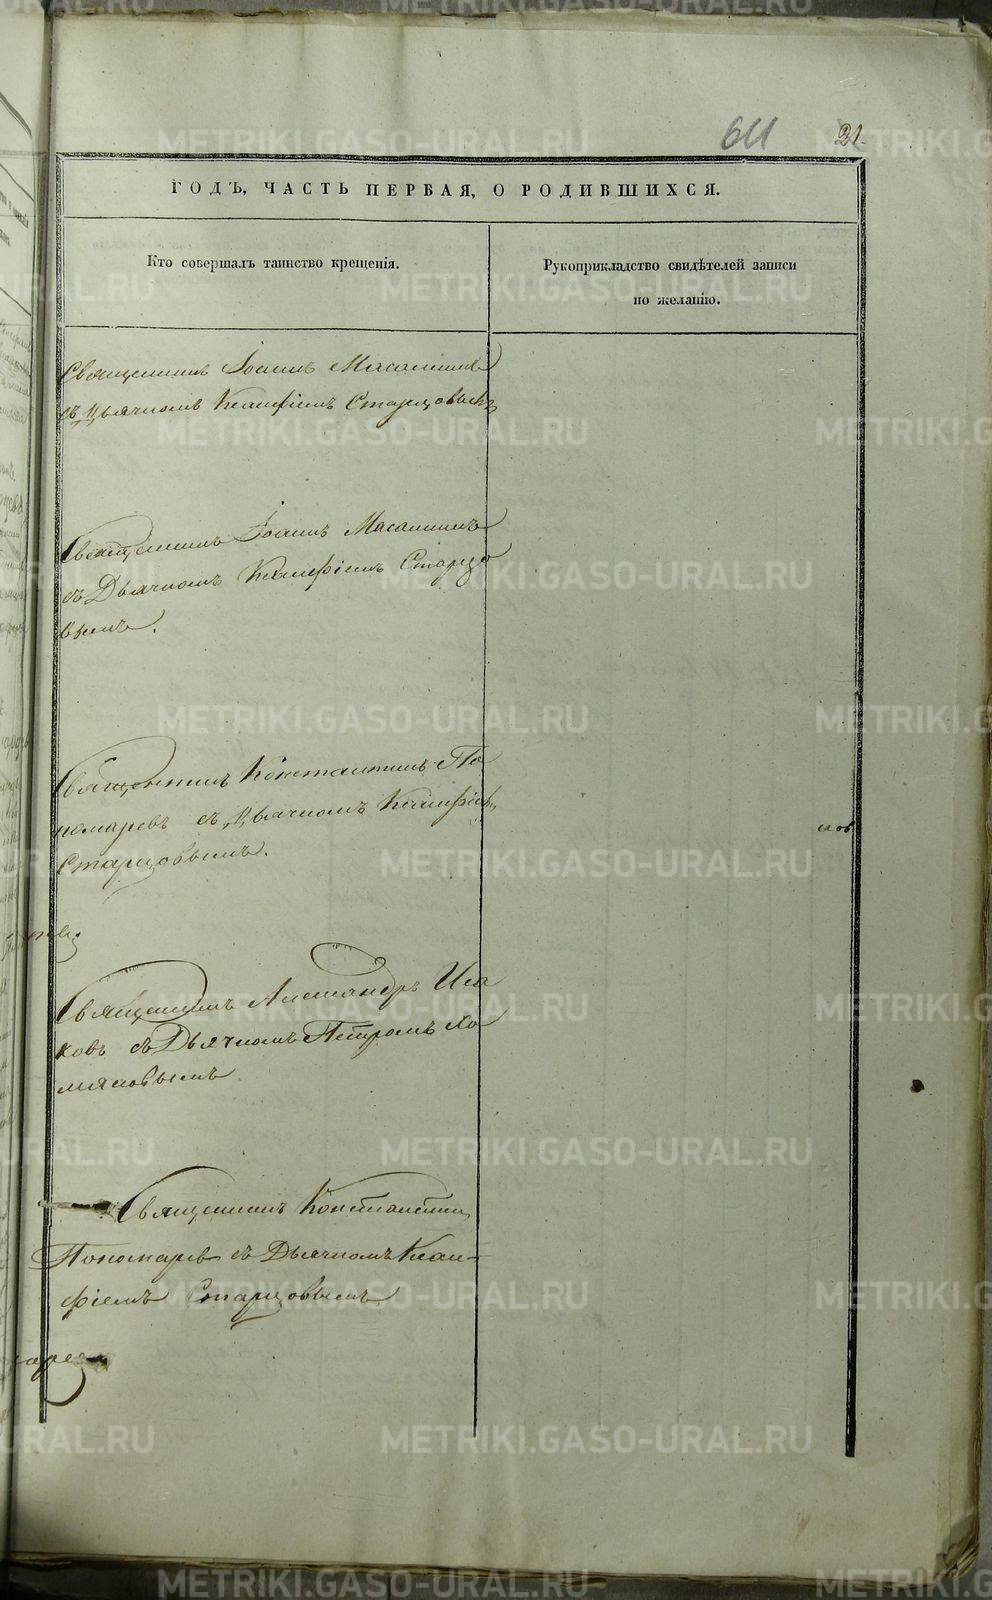 611 21.
ГОДЪ, ЧАСТЬ ПЕРВАЯ, О РОДИВШИХСЯ.
Кто совершалъ таинство крещенія.
Рукоприкладство свидѣтелей записи
по желанію.
Священникъ Іоаннъ Масалкинъ
съ Дьячкомъ Ксанфіемъ Старцовымъ
Священникъ Іоаннъ Масалкинъ
съ Дьячкомъ Ксанфіемъ Старцо
вымъ.
Священникъ Константинъ По
номаревъ съ Дьячкомъ Ксанфіемъ
Старцовымъ.
Священникъ Александръ Иса
ковъ съ Дьячкомъ Петромъ Хо
мяковымъ
Священникъ Константинъ
Пономаревъ съ Дьячкомъ Ксан-
фіемъ Старцовымъ
METRIKI.GASO-URAL.RU